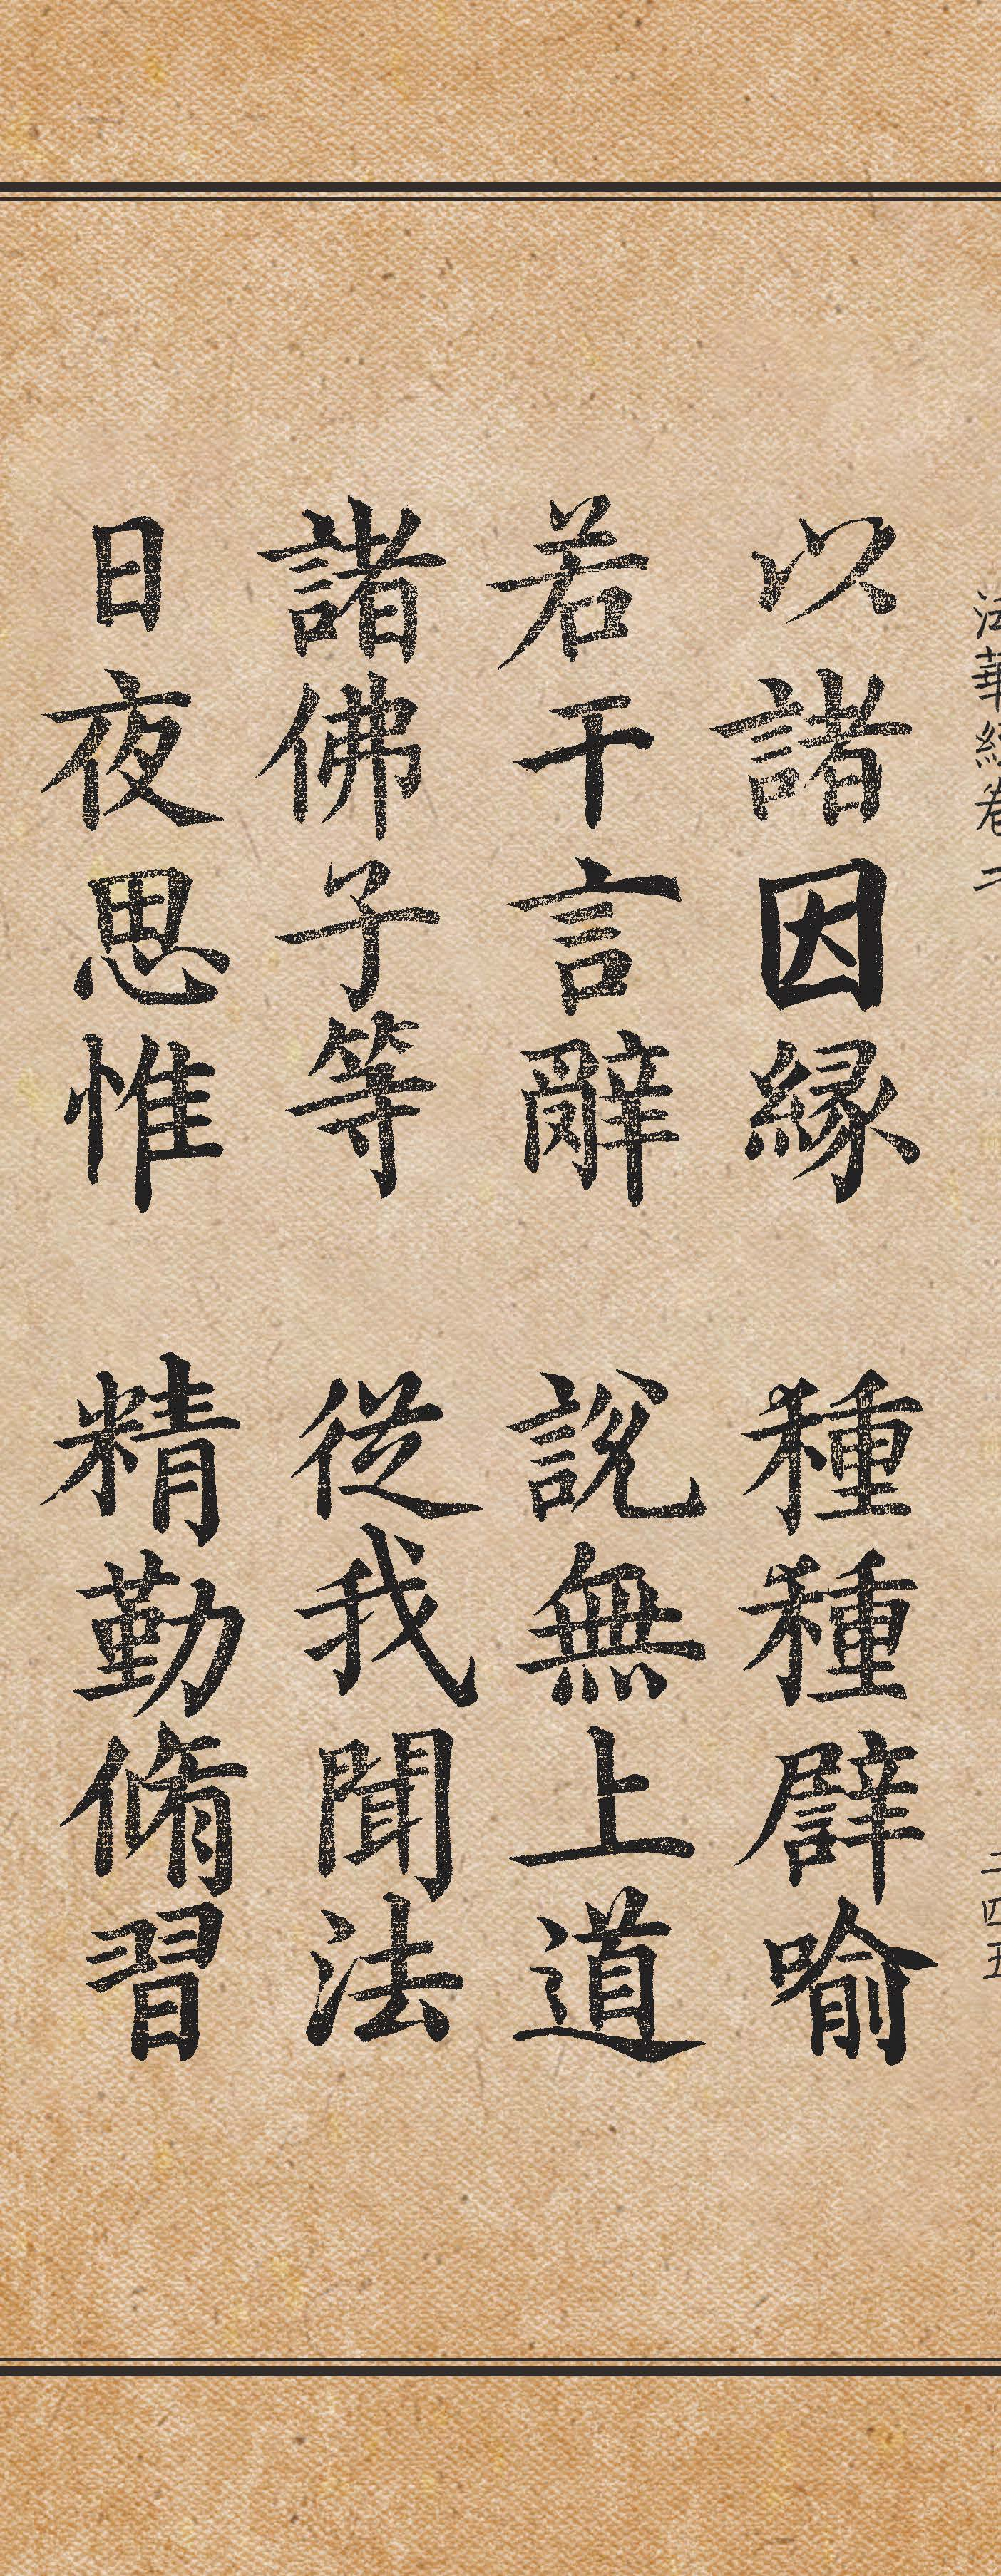 法華經卷二
二四五
以諸因縁 種種譬喻
若干言辭 說無上道
諸佛子等 從我聞法
日夜思惟 精勤脩習